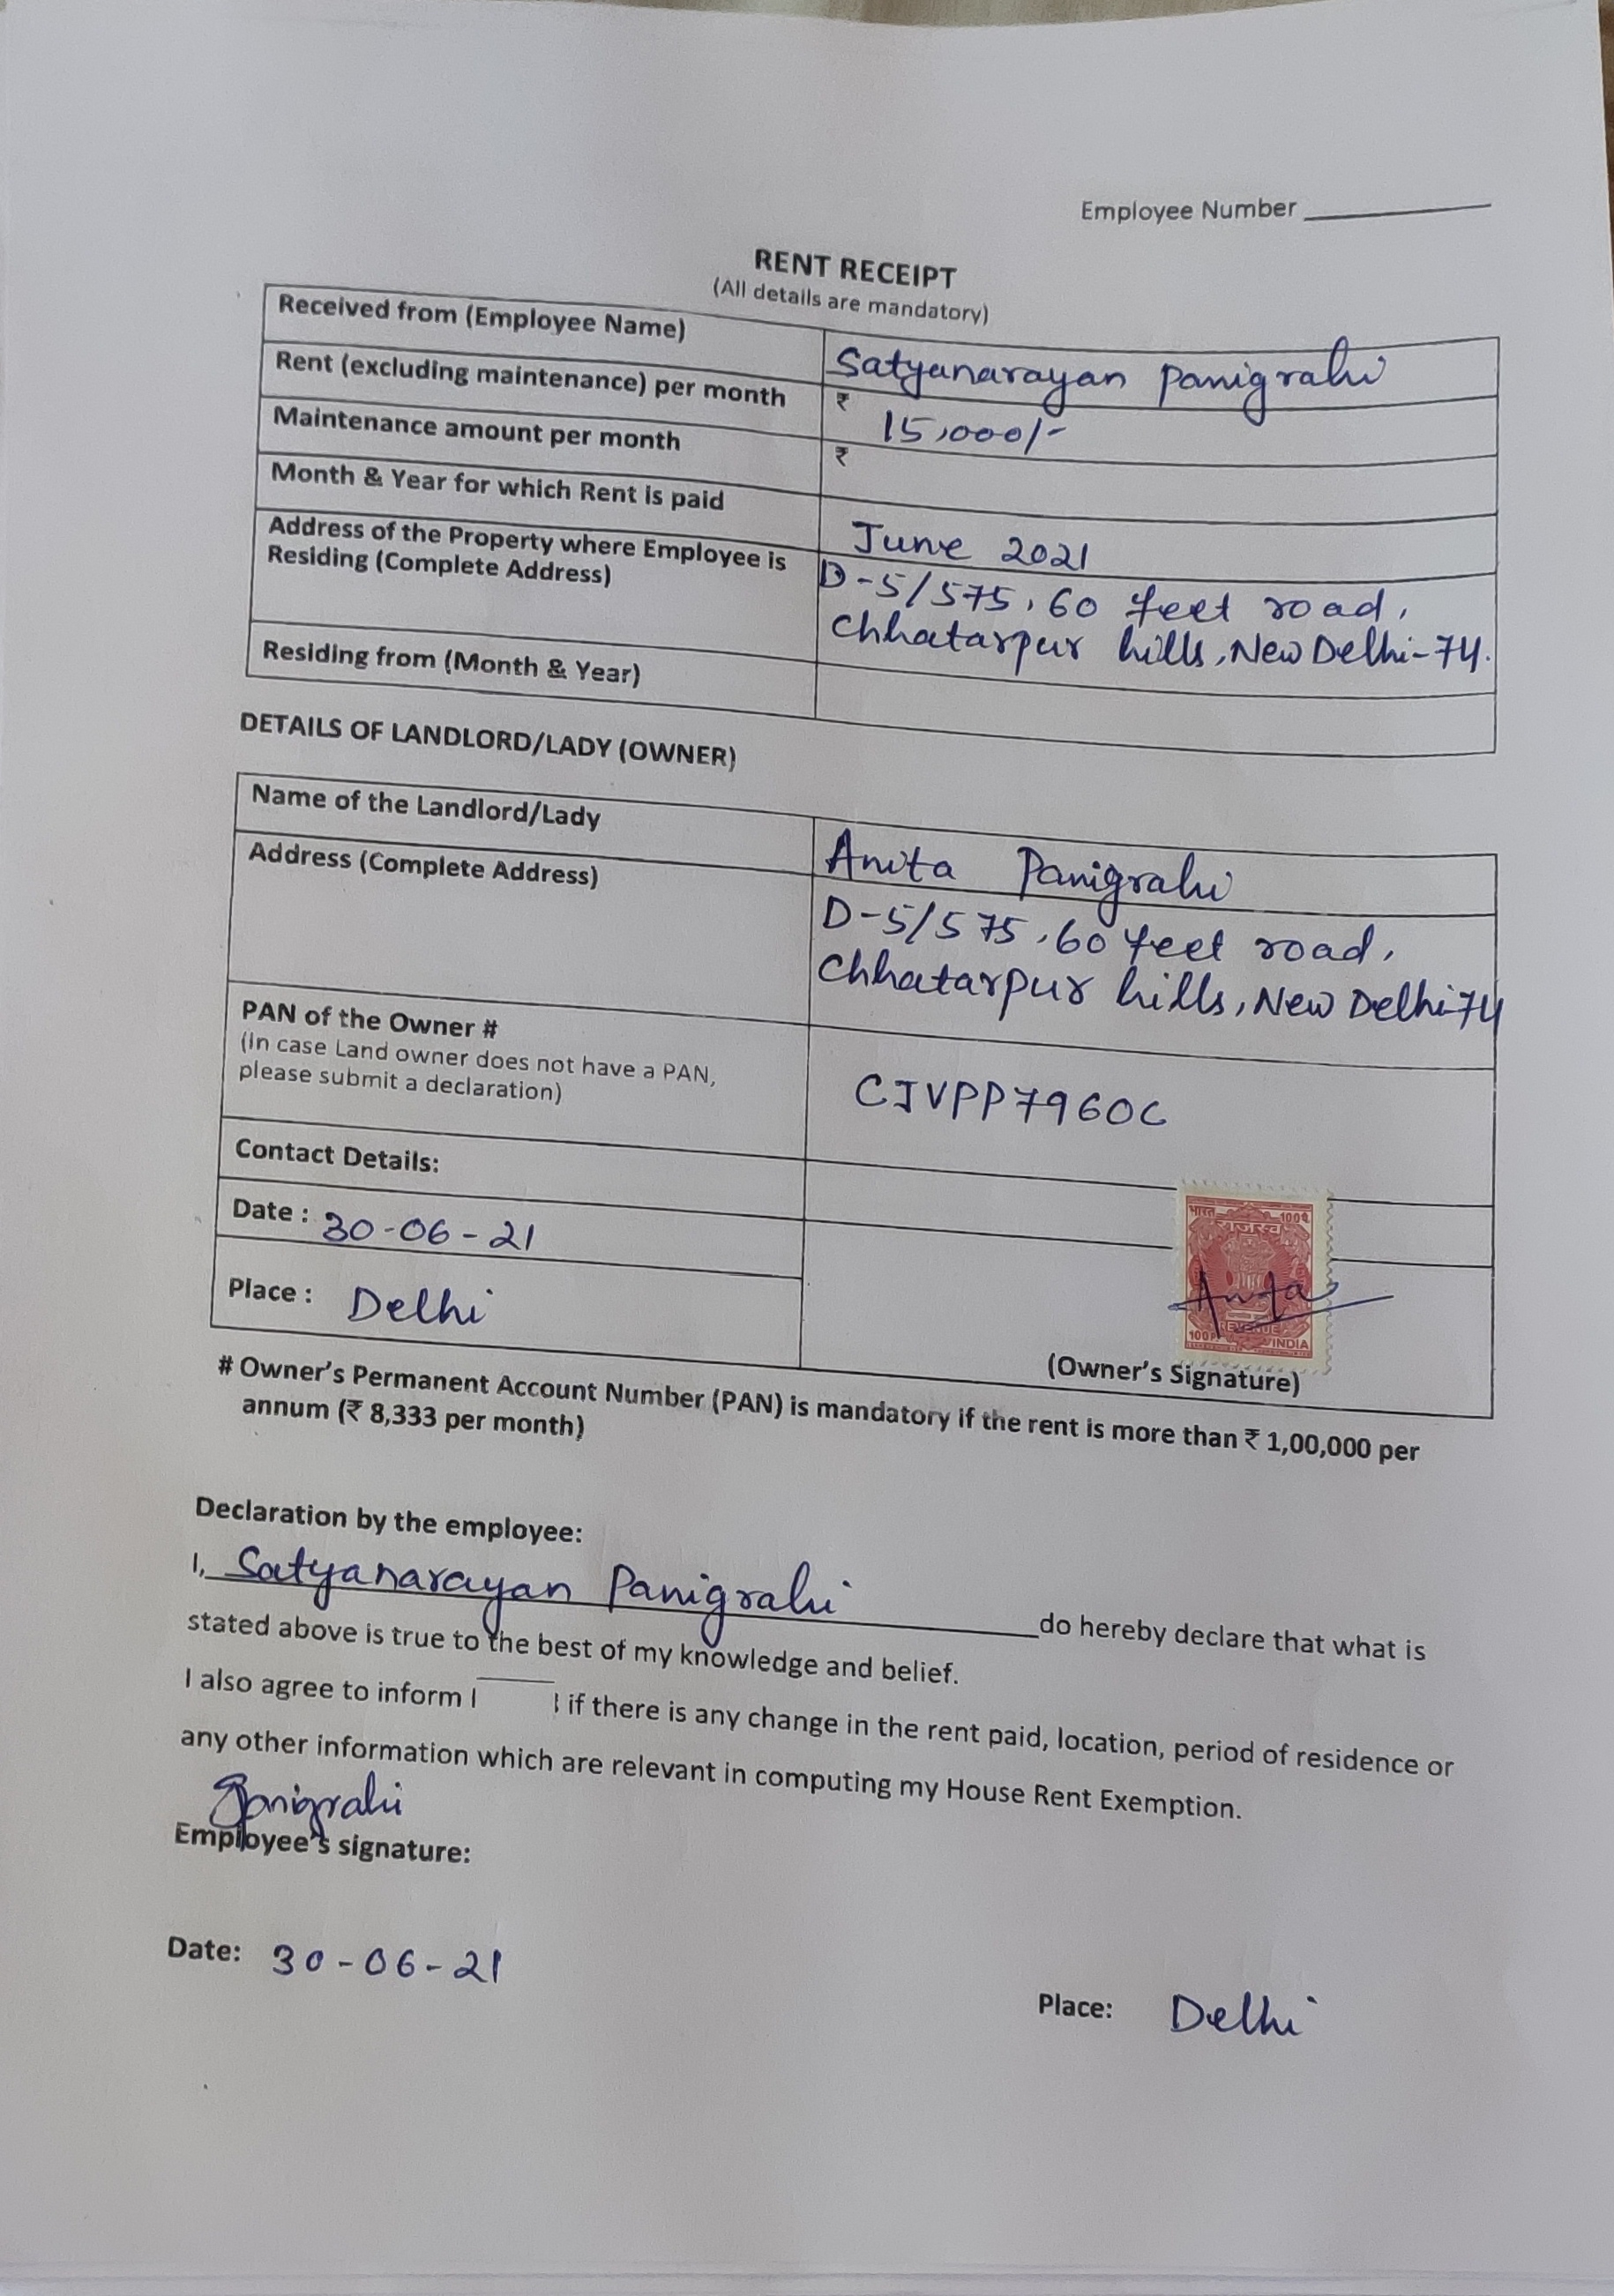 Employee Number
RENT RECEIPT
(All details are mandatory)
Received from (Employee Name) Satyanarayan Panigrahi
Rent (excluding maintenance) per month ₹ 15,000/-
Maintenance amount per month ₹
Month & Year for which Rent is paid June 2021
Address of the Property where Employee is D-5/575, 60 feet road,
Residing (Complete Address) Chhatarpur hills, New Delhi-74.
Residing from (Month & Year)
DETAILS OF LANDLORD/LADY (OWNER)
Name of the Landlord/Lady Anita Panigrahi
Address (Complete Address) D-5/575, 60 feet road,
Chhatarpur hills, New Delhi-74
PAN of the Owner #
(In case Land owner does not have a PAN,
please submit a declaration) CJVPP7960C
Contact Details:
Date : 30-06-21
Place : Delhi
भारत 100
राजस्व
Anita
REVENUE
100 INDIA
(Owner's Signature)
# Owner's Permanent Account Number (PAN) is mandatory if the rent is more than ₹ 1,00,000 per
annum (₹ 8,333 per month)
Declaration by the employee:
I, Satyanarayan Panigrahi do hereby declare that what is
stated above is true to the best of my knowledge and belief.
I also agree to inform if there is any change in the rent paid, location, period of residence or
any other information which are relevant in computing my House Rent Exemption.
Panigrahi
Employee's signature:
Date: 30-06-21
Place: Delhi